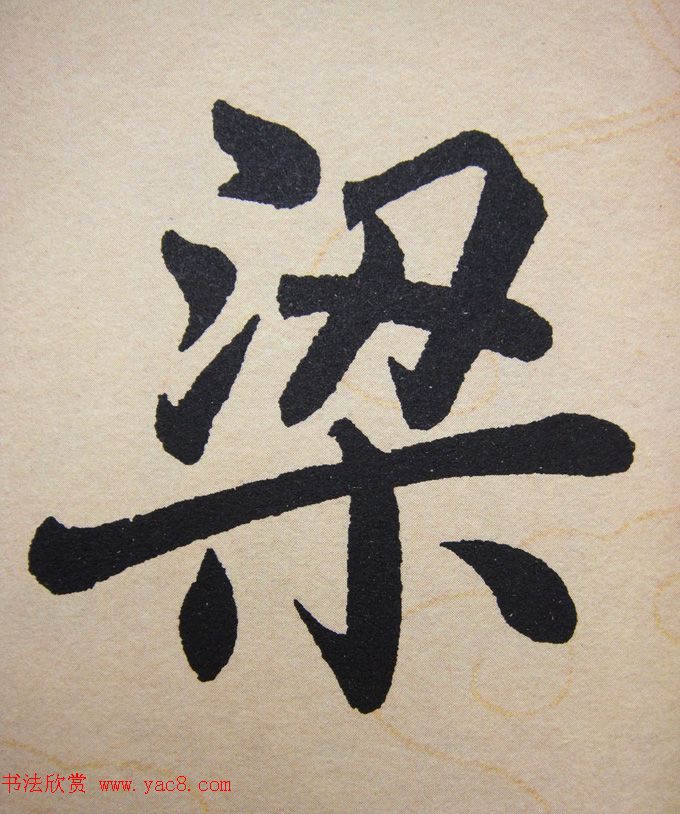 梁
书法欣赏 www.yac8.com